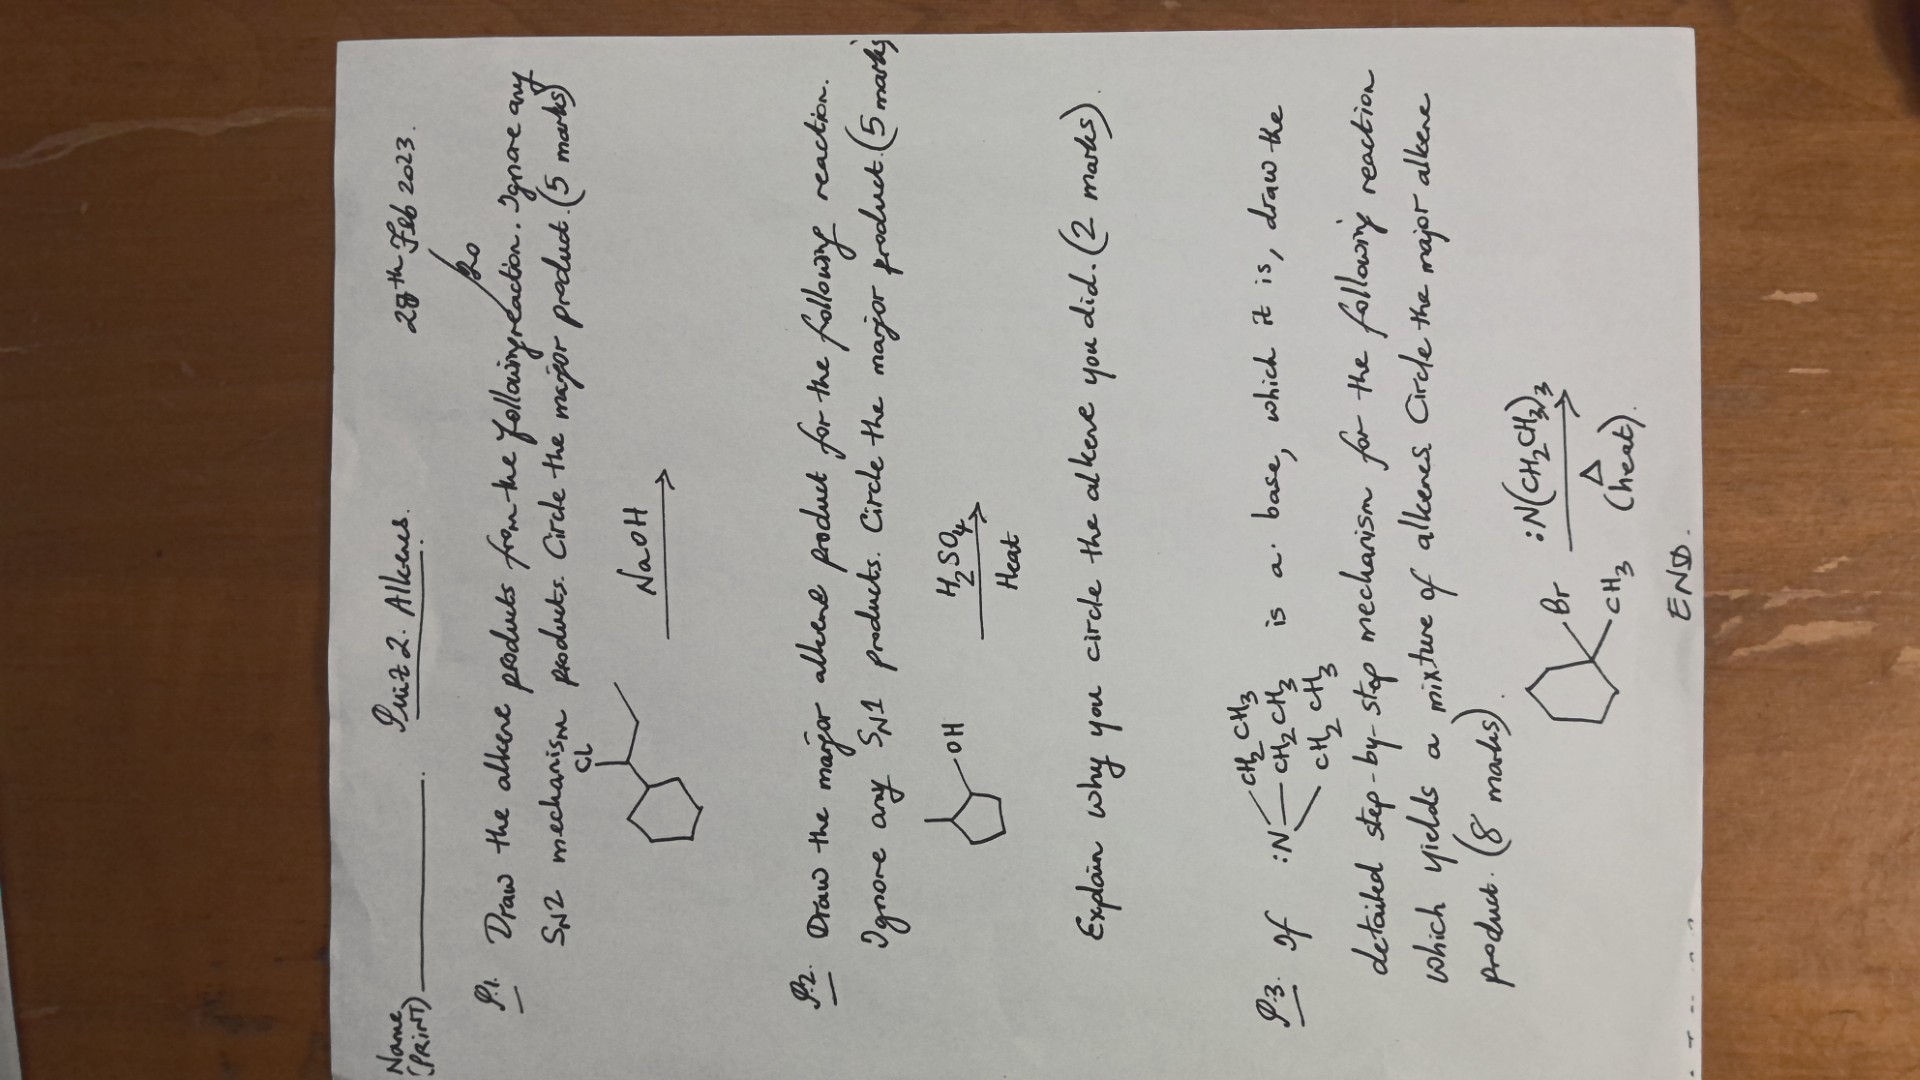 Name (PRINT) ________. Quiz 2. Alkenes. 28th Feb 2023.
/20
Q.1. Draw the alkene products from the following reaction. Ignore any
SN2 mechanism products. Circle the major product. (5 marks)
Cl
NaOH
Q.2. Draw the major alkene product for the following reaction.
Ignore any SN1 products. Circle the major product. (5 marks)
OH
H2SO4
Heat
Explain why you circle the alkene you did. (2 marks).
Q.3. If :N CH2CH3 CH2CH3 CH2CH3 is a base, which it is, draw the
detailed step-by-step mechanism for the following reaction
which yields a mixture of alkenes Circle the major alkene
product. (8 marks).
Br
CH3
:N(CH2CH3)3
Δ
(heat).
END.